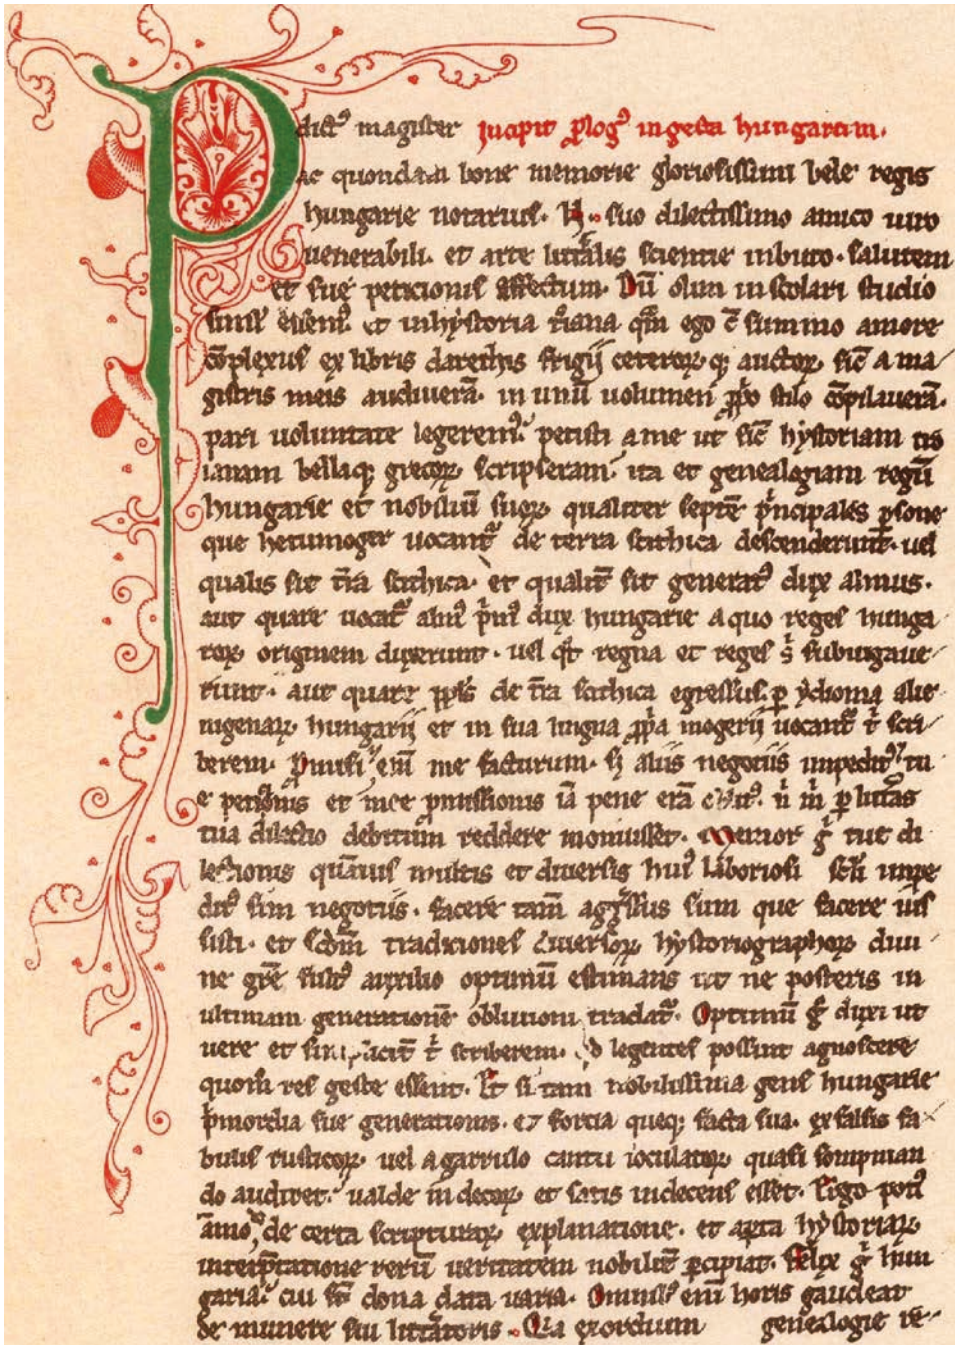 P dictꝰ magister Incipit ꝓlogꝰ in gesta hungarum.
ac quondam bone memorie gloriosissimi bele regis
hungarie notarius. N. suo dilectissimo amico uiro
uenerabili. et arte litͣalis scientie inbuto. salutem
et sue peticionis affectum. Dū olim in scolari studio
simul essemꝰ. et in hystoria tͦiana qͣm ego cū summo amore
cōplexus ex libris daretis frigij ceterorꝝ qꝫ auctorꝝ sic̄ a ma
gistris meis audiuerā. in unū uolumen ꝓprͦo stilo cōpilauerā.
pari uoluntate legeremꝰ. petisti a me ut sic̄ hystoriam tro
ianam bellaqꝫ grecorꝝ scripseram. ita et genealogiam regū
hungarie et nobiliū suorꝝ. qualiter septē pͥncipales ꝑsone
que hetumoger uocantᷣ de terra scithica descenderunt. uel
qualis sit tͬra scithica. et qualit̄ sit generatꝰ dux almus.
aut quare uocatᷣ almꝰ pͥmꝰ dux hungarie a quo reges hunga
rorꝝ originem duxerunt. uel qͦt regna et reges sͥ subiugaue
runt. aut quare ppl̄s de tͬra scithica egressus ꝑ ydioma alie
nigenarꝝ hungarij et in sua lingua ꝓpͥa mogerij uocantᷣ tͥ scri
berem. Promisi enī me facturum. sꝫ aliis negotiis impeditꝰ tu
e petitionis et mee promissionis iā pene erā oblitꝰ. nͥ mͥ ꝑ litͣas
tua dilectio debitum reddere monuisset. Memor gͥ tue di
lectionis quāuis multis et diuersis huiꝰ laboriosi sc̄li impe
ditꝰ sim negotiis. facere tam̄ aggͬssus sum que facere ius
sisti. et scd̄m traditiones diuersorꝝ hystoriographorꝝ diui
ne gr̄e fultꝰ auxilio optimū estimans ut ne posteris in
ultimam generationē obliuioni tradatᷣ. Optimū gͥ duxi ut
uere et simplicit̄ tͥ scriberem. qd legentes possint agnoscere
quom̄ res geste essent. Et si tam nobilissima gens hungarie
pͥmordia sue generationis. et fortia queqꝫ facta sua. ex falsis fa
bulis rusticorꝝ. uel a garrulo cantu ioculatorꝝ quasi sompnian
do audiret. ualde indecorꝝ et satis indecens esset. Ergo potiꝰ
āmo, de certa scripturarꝝ explanatione. et aperta hystoriarꝝ
interpͬtatione rerū ueritatem nobilit̄ ꝑcipiat. Felix gͥ hun
garia. cui sūt dona data uaria. Omnibꝰ enī horis gaudeat
de munere sui litͣatoris. Qͥa exordium genealogie re